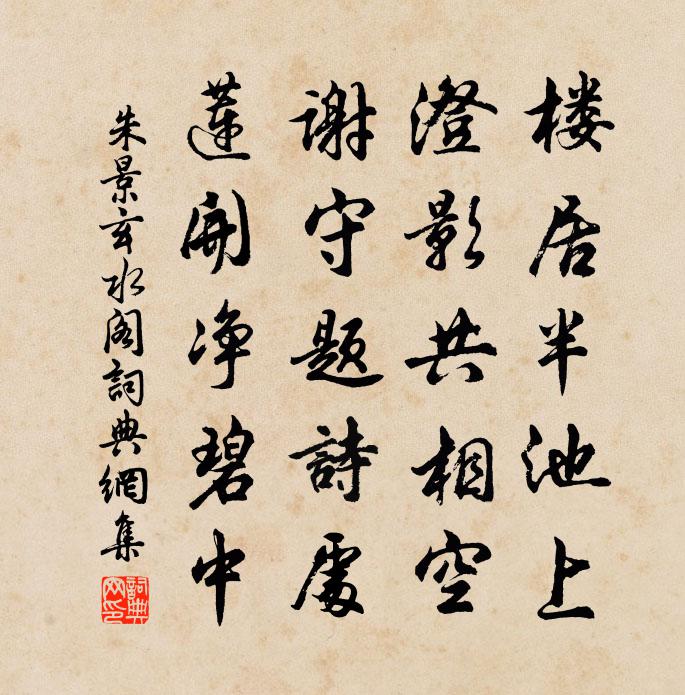 楼居半池上
澄影共相空
谢守题詩處
蓮開净碧中
朱景玄水阁詞典網集
詞典网印